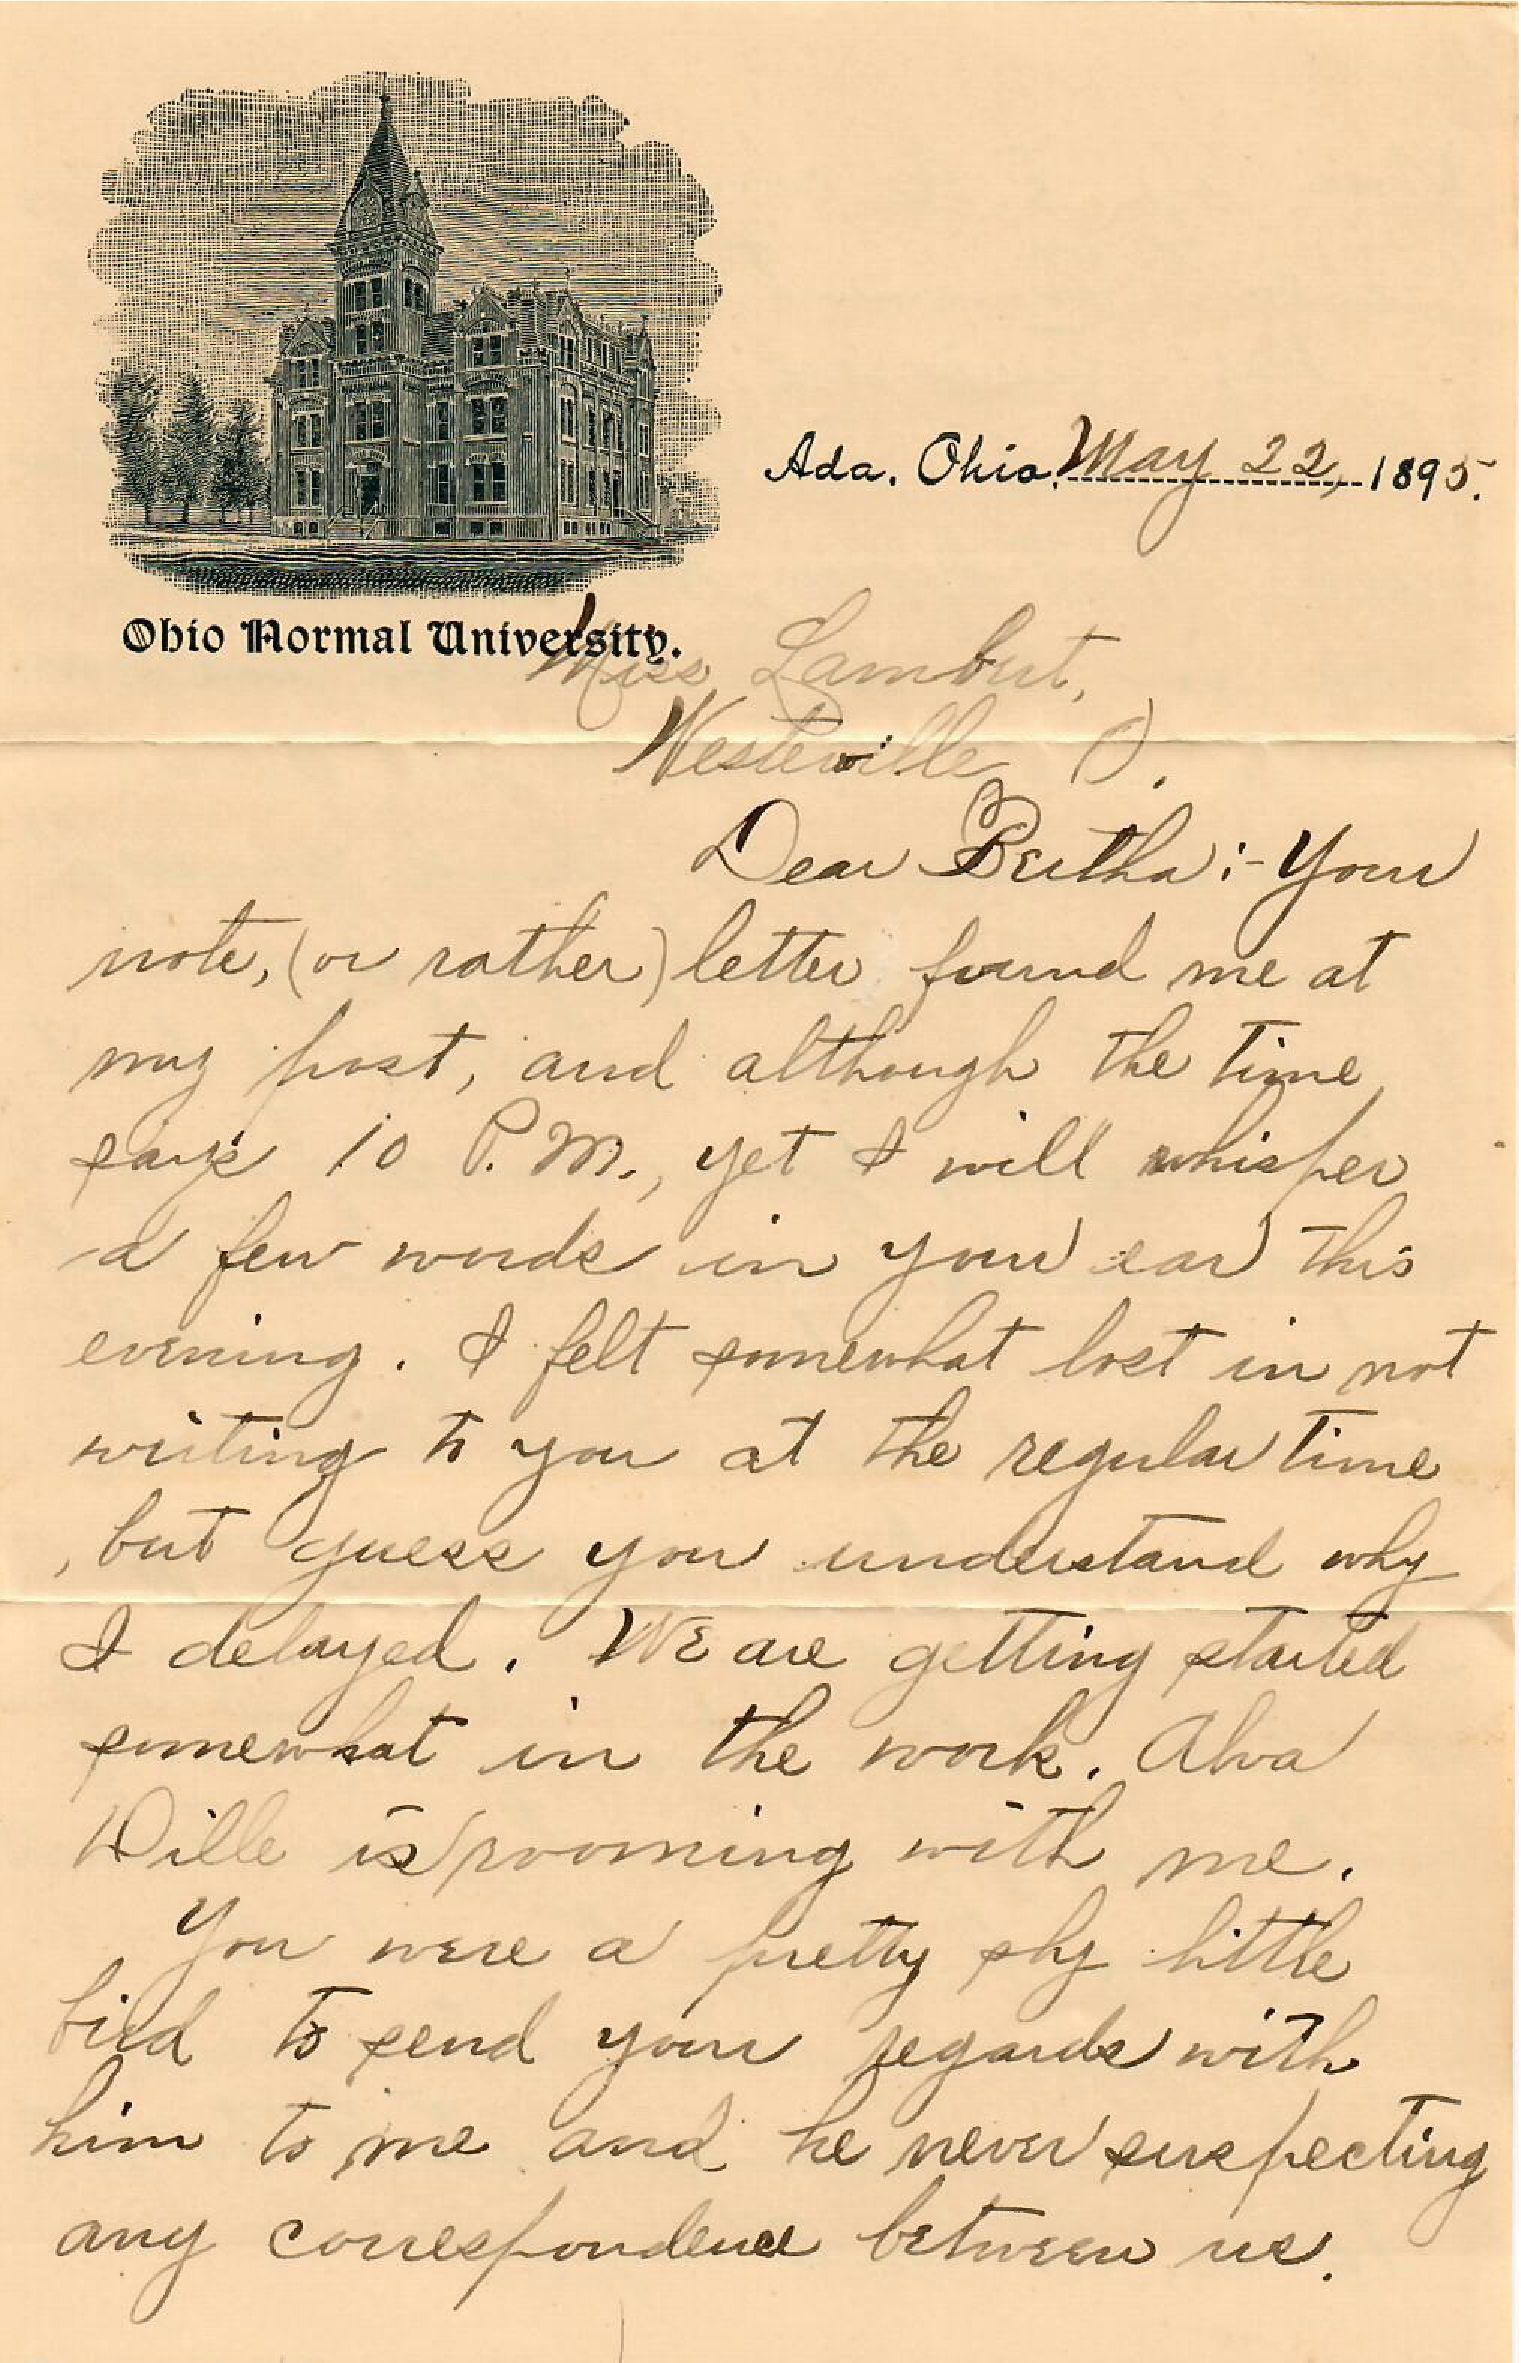 Ada, Ohio, May 22, 1895.
Ohio Normal University.
Miss Lambert,
Westerville O.
Dear Bertha:- Your
note, (or rather) letter found me at
my post, and although the time
says 10 P.M., yet I will whisper
a few words in your ear this
evening. I felt somewhat lost in not
writing to you at the regular time
, but guess you understand why
I delayed. We are getting started
somewhat in the work. Alva
Dille is rooming with me.
You were a pretty shy little
bird to send your regards with
him to me and he never suspecting
any correspondence between us.